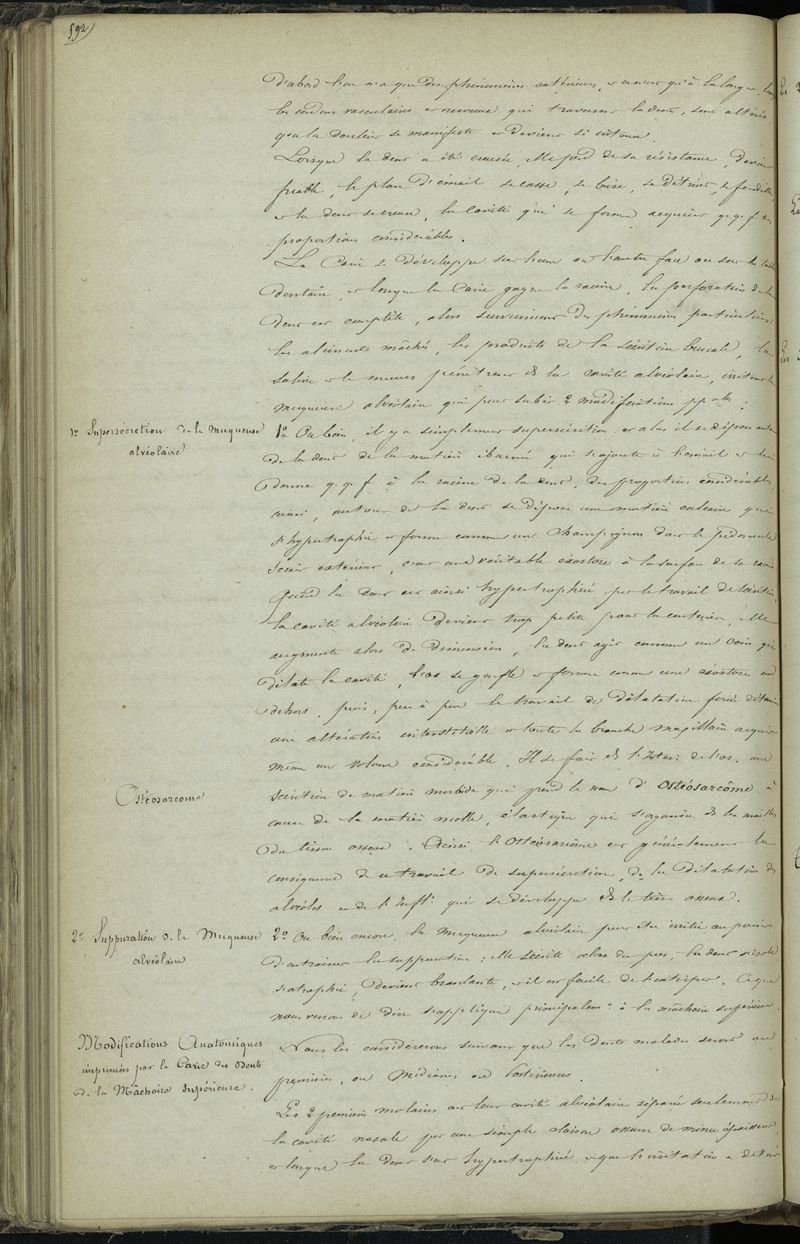 592
D'abord l'on n'a que des phénomènes extérieurs, et ce n'est qu'à la longue,
les cordons vasculaires et nerveux qui traversent la dent, sont altérés
que la douleur se manifeste et devient si intense.
Lorsque la dent a été creusée, elle perd de sa résistance, devient
friable, le plan d'émail se casse, se brise, se détruit, se fendille,
et la dent se creuse, la cavité qui se forme acquiert q.q.f. des
proportions considérables.
La Carie se développe sur l'une ou l'autre face ou sur le
dentaire, et lorsque la Carie gagne la racine, la perforation de la
dent est complète, alors surviennent des phénomènes particuliers:
les aliments mâchés, les produits de la sécrétion buccale, la
salive et le mucus pénètrent ds la cavité alvéolaire, irritent la
muqueuse alvéolaire qui peut subir 2 modifications ppales :
1º Supersécretion de la muqueuse
alvéolaire
1º Ou bien, il y a simplement supersécrétion et alors il se dépose autour
de la dent de la matière éburnée qui s'ajoute à l'émail et lui
donne q.q.f. à la racine de la dent, des proportions considérables,
ainsi, autour de la dent se dépose une matière calcaire qui
s'hypertrophie et forme comme un champignon dont le pédoncule
serait extérieur, c'est une véritable exostose à la surface de la racine
Quand la dent est ainsi hypertrophiée par le travail de sécrétion,
la cavité alvéolaire devient trop petite pour la contenir, elle
augmente alors de dimension, la dent agit comme un coin qui
dilate la cavité, l'os se gonfle et forme comme une exostose en
dehors, puis, peu à peu le travail de dilatation forcée détermine
une altération interstitielle et toute la branche maxillaire acquiert
même un volume considérable. Il se fait ds l'intér. de l'os, une
Ostéosarcome
sécrétion de matière morbide qui prend le nom d'Ostéosarcôme à
cause de la matière molle, élastique qui s'organise ds les mailles
du tissu osseux. Ainsi l'Ostéosarcôme est généralement la
conséquence de ce travail de supersécrétion, de la dilatation des
alvéoles et de l'Inflt. qui se développe ds le tissu osseux.
2º Suppuration de la Muqueuse
alvéolaire
2º Ou bien encore, la muqueuse alvéolaire peut être irritée au point
d'entrainer la suppuration : elle sécrète alors du pus, la dent s'isole
s'atrophie, devient branlante, et il est facile de l'extirper. Ce que
nous venons de dire s'applique principalemt. à la mâchoire supérieure.
Modifications Anatomiques
imprimées par la Carie des Dents
de la Mâchoire Supérieure.
Nous les considererons suivant que les Dents malades seront
premières, ou Médianes ou Postérieures.
Les 2 premières molaires ont leur cavité alvéolaire séparée seulement de
la cavité nasale par une simple cloison osseuse de mince épaisseur,
et lorsque la dent s'est hypertrophiée et que l'irritation a déterminé